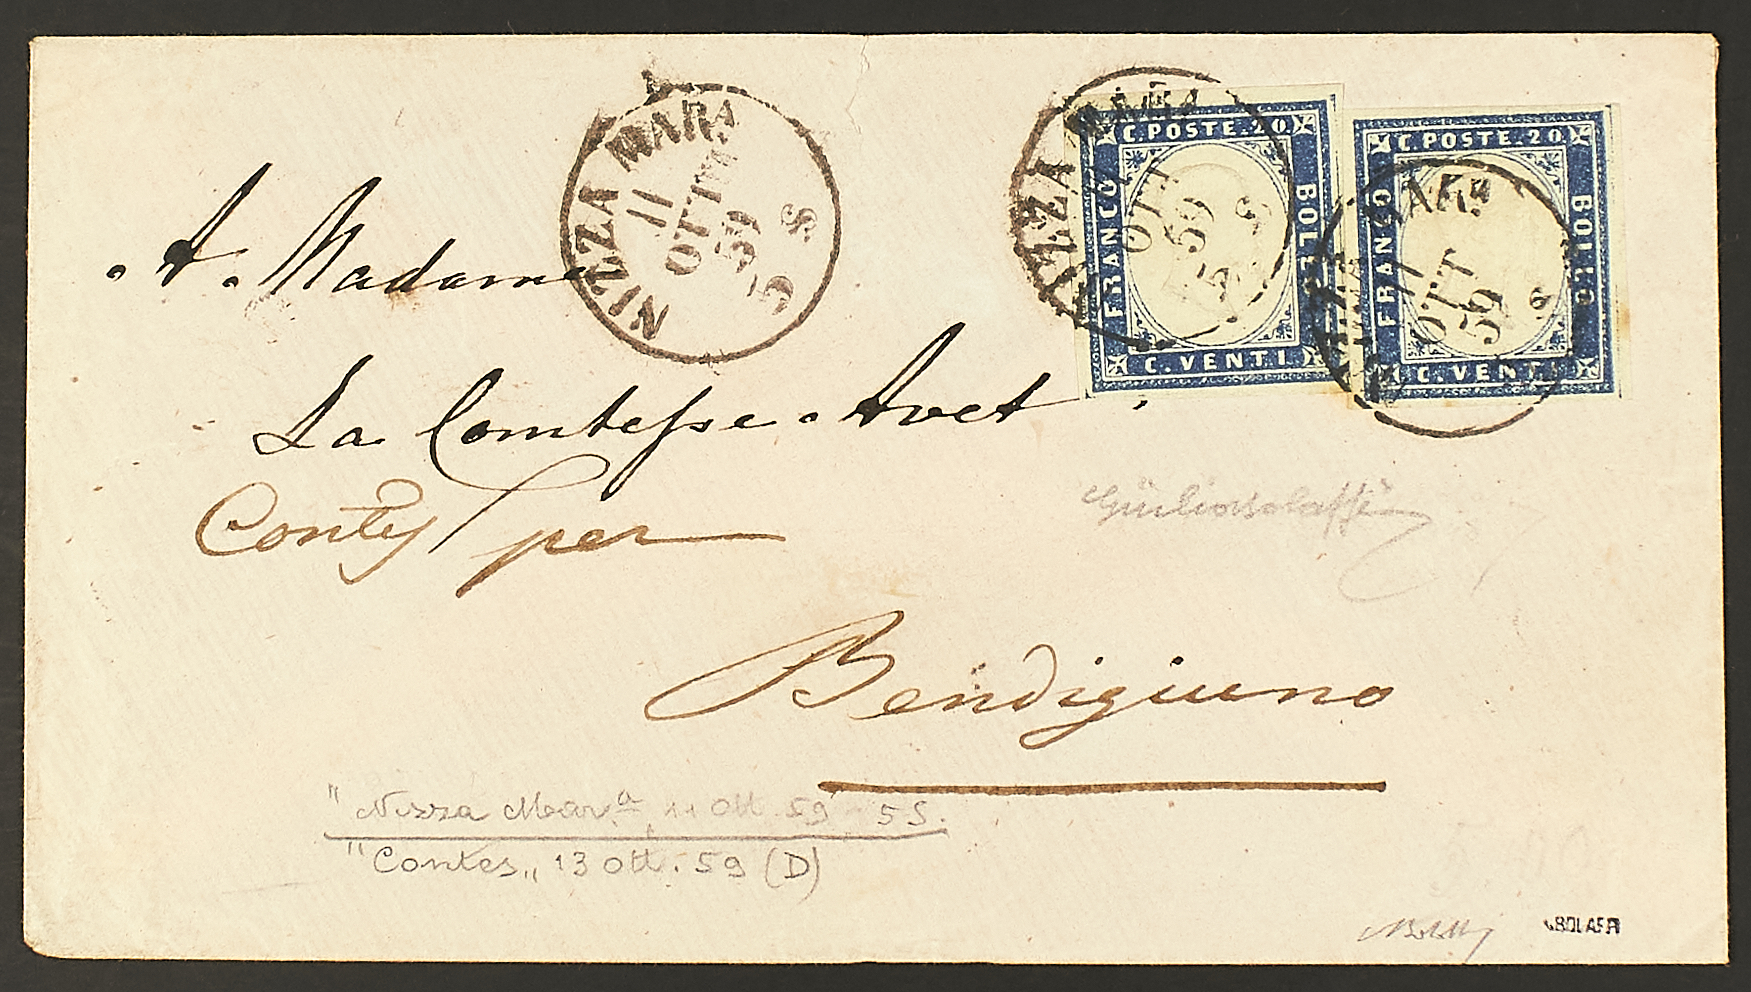 NIZZA MARA
11
OTT
59
5 S
NIZZA MARA
OTT
59
5 S
C. POSTE. 20
FRANCO
BOLLO
C. VENTI
C. POSTE. 20
FRANCO
BOLLO
C. VENTI
MARA
11
OTT
59
S
A. Madame
La Comtesse Avet
Contes per
Bendigiuno
"Nizza Mar.a 11 Ott. 59 - 5S.
"Contes„ 13 Ott. 59 (D)